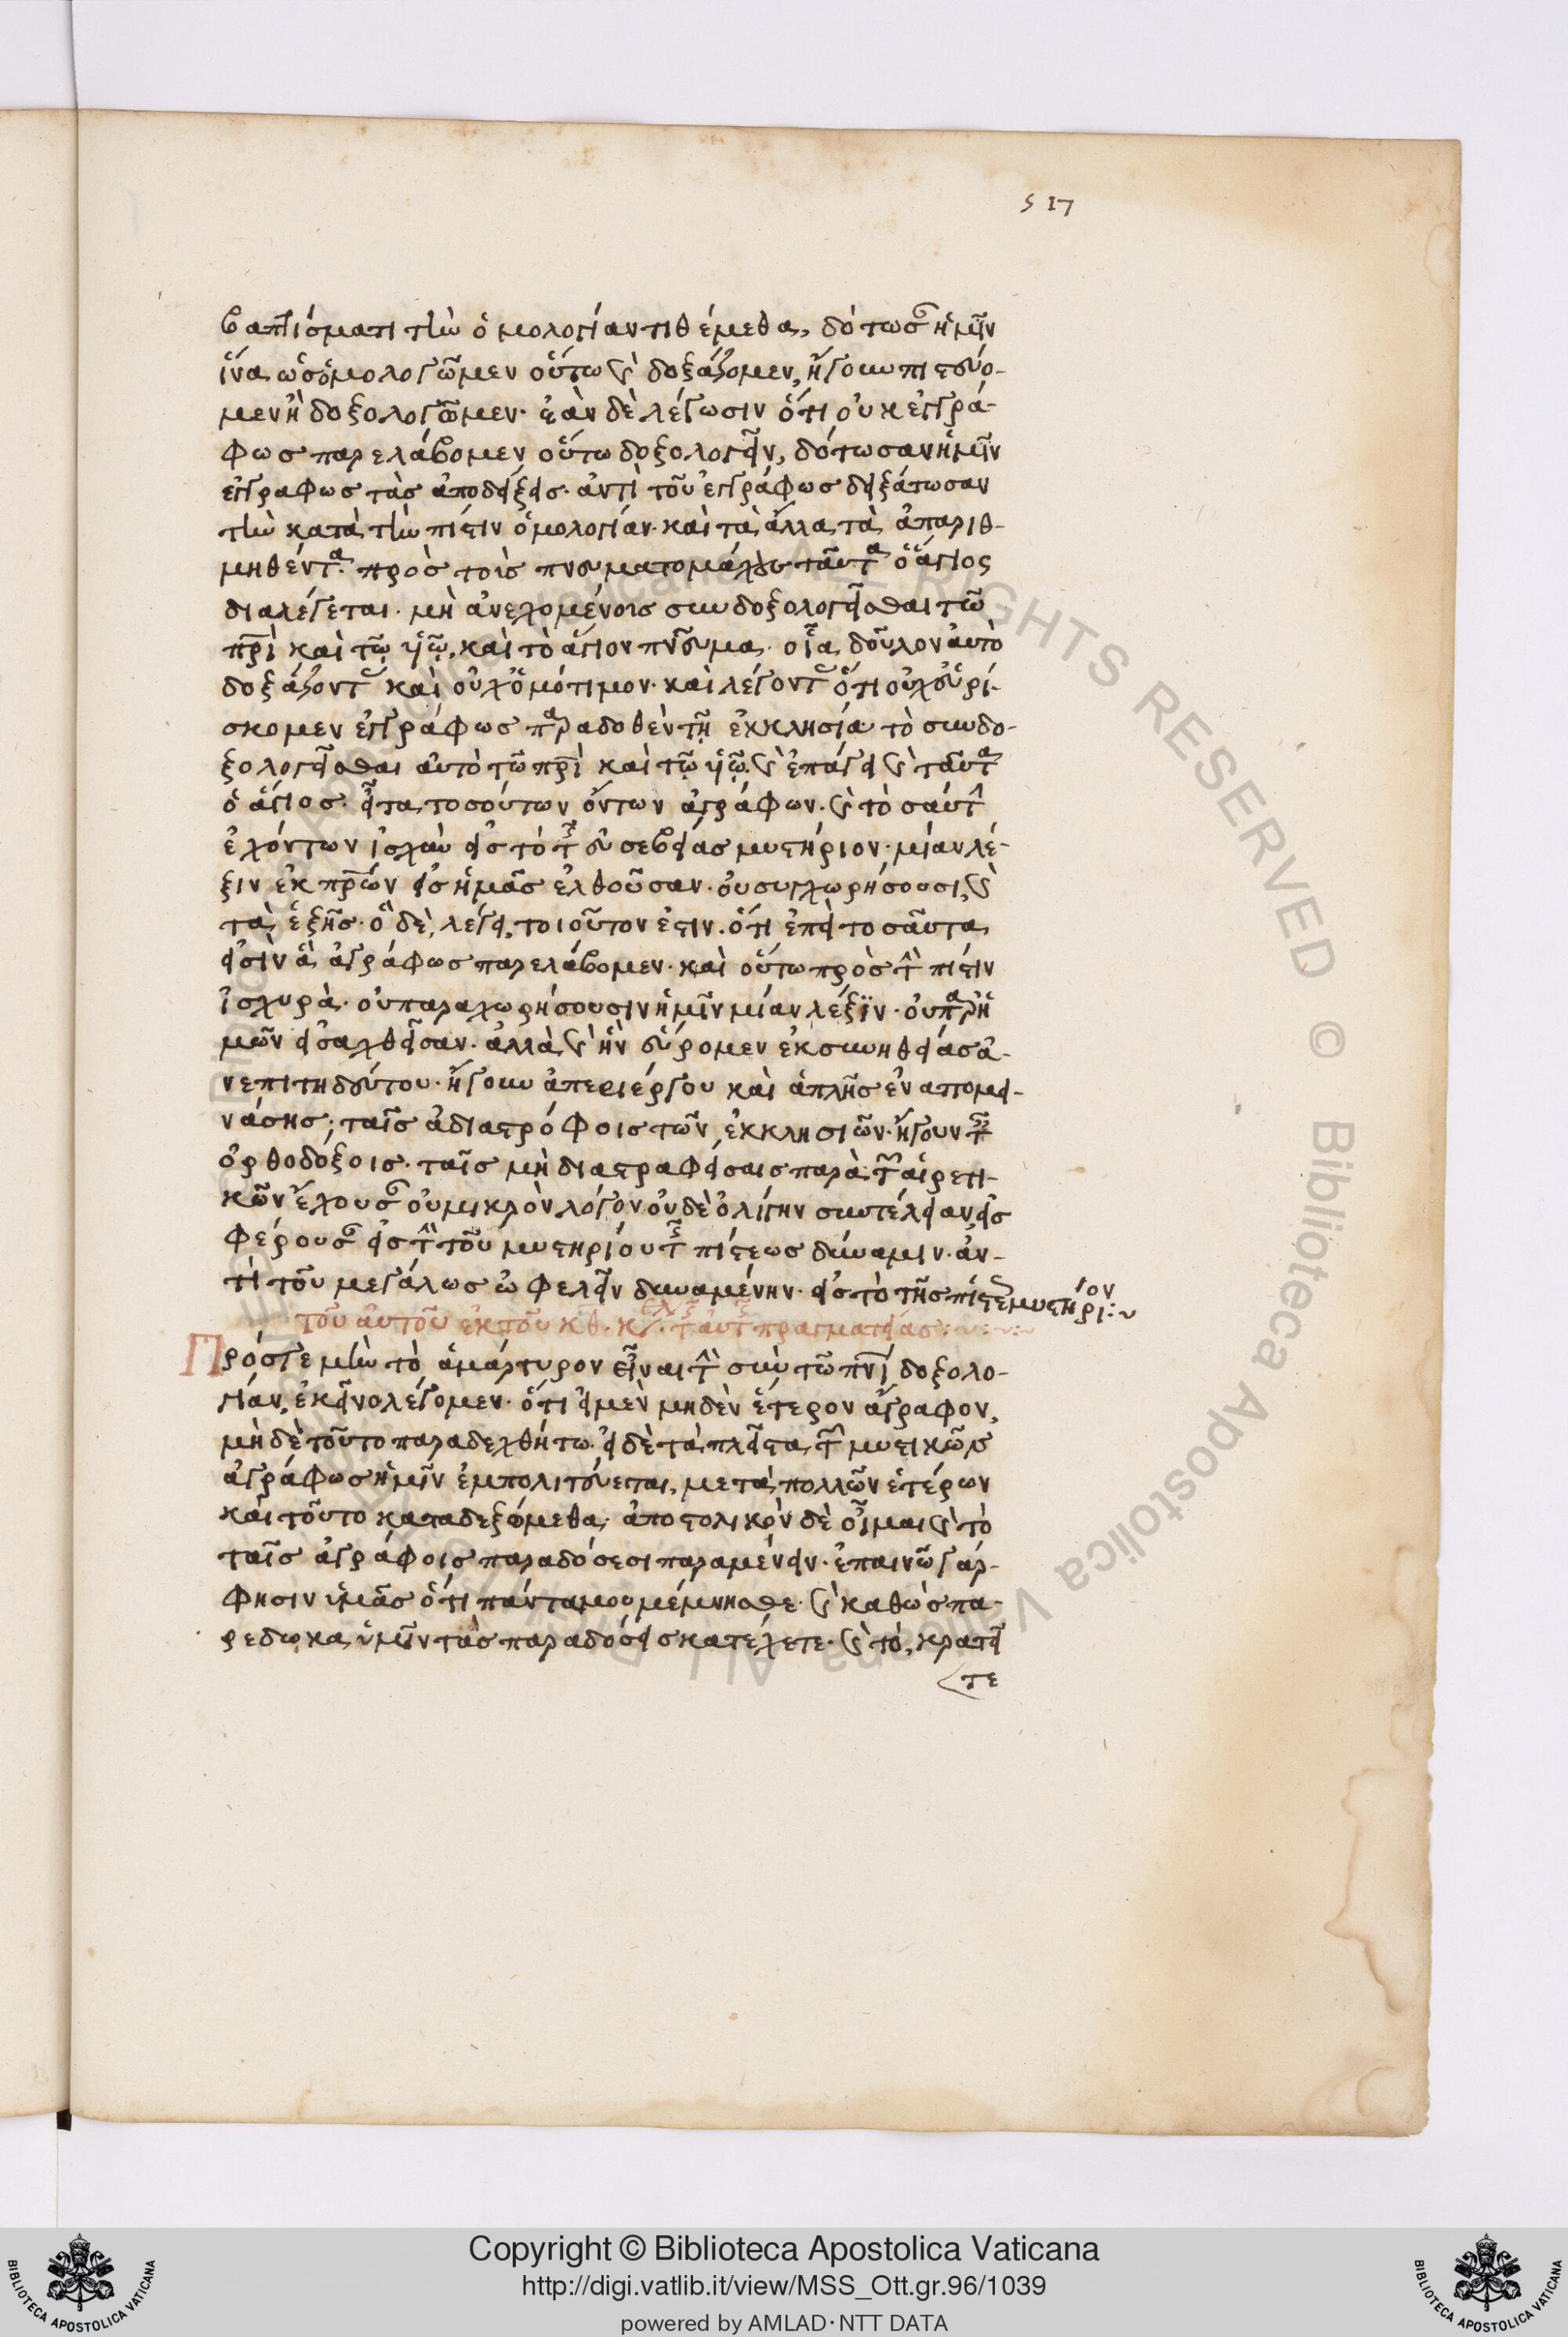 517
βαπτίσματι τὴν ὁμολογίαν τιθέμεθα, δότωσαν ἡμῖν
ἵνα ὡς ὁμολογῶμεν οὕτω καὶ δοξάζομεν, ἤγουν πιστεύο-
μεν ἢ δοξολογῶμεν· ἐὰν δὲ λέγωσιν ὅτι οὐκ ἐγγρά-
φως παρελάβομεν οὕτω δοξολογεῖν, δότωσαν ἡμῖν
ἐγγραφως τὰς ἀποδείξεις· ἀντὶ τοῦ ἐγγράφως δειξάτωσαν
τὴν κατὰ τὴν πίστιν ὁμολογίαν· καὶ τὰ ἄλλα τὰ ἀπαριθ-
μηθέντα· πρὸς τοὺς πνευματομάχους ταῦτα ὁ ἅγιος
διαλέγεται· μὴ ἀνεχομένοις συνδοξολογεῖσθαι τῶ
πρὶ καὶ τῷ υἱῷ, καὶ τὸ ἅγιον πνεῦμα· οἷα δοῦλον αὐτὸ
δοξάζοντες καὶ οὐχ ὁμότιμον· καὶ λέγοντες ὅτι οὐχ εὑρί-
σκομεν ἐγγράφως παραδοθὲν τῇ ἐκκλησία τὸ συνδο-
ξολογεῖσθαι αὐτὸ τῶ πρὶ καὶ τῷ υἱῷ· καὶ ἐπάγει καὶ ταῦτα
ὁ ἅγιος· εἶτα τοσούτων ὄντων ἀγράφων· καὶ τοσαύτην
ἐχόντων ἰσχὺν εἰς τὸ τῆς εὐσεβείας μυστήριον· μίαν λέ-
ξιν ἐκ πρων εἰς ἡμᾶς ἐλθοῦσαν· οὐ συγχωρήσουσι, καὶ
τὰ ἑξῆς· ὃ δὲ λέγει τοιοῦτον ἐστιν· ὅτι ἐπεὶ τοσαῦτα
εἰσὶν ἃ ἀγράφως παρελάβομεν· καὶ οὕτω πρὸς τὴν πίστιν
ἰσχυρὰ· οὐ παραχωρήσουσιν ἡμῖν μίαν λέξϊν· οὐ παρ ἡ
μῶν εἰσαχθεῖσαν· ἀλλὰ καὶ ἣν εὕρομεν ἐκ συνηθείας ἀ-
νεπιτηδεύτου· ἤγουν ἀπεριέργου καὶ ἁπλῆς ἐναπομει-
νάσης; ταῖς ἀδιαστρόφοις τῶν ἐκκλησιῶν· ἤγουν ταῖς
ὀρθοδόξοις· ταῖς μὴ διαστραφείσαις παρὰ τῶν αἱρετι-
κῶν ἔχουσαν οὐ μικρὸν λόγον οὐδὲ ὀλίγην συντέλειαν εἰς
φέρουσαν εἰς τὴν τοῦ μυστηρίου τῆς πίστεως δύναμιν· ἀν-
τὶ τοῦ μεγάλως ὠφελεῖν δυναμένην· εἰς τὸ τῆς πίστεως μυστήριον:~
τοῦ αὐτοῦ ἐκ τοῦ κθ· κεφ· τῆς αὐτῆς πραγματείας:~
Πρός γε μὴν τὸ ἀμάρτυρον εἶναι τὴν σὺν τῶ πνὶ δοξολο-
γίαν, ἐκεῖνο λέγομεν· ὅτι εἰ μὲν μηδὲν ἕτερον ἄγραφον,
μὴ δὲ τοῦτο παραδεχθήτω· εἰ δὲ τὰ πλεῖστα τῶν μυστικῶν
ἀγράφως ἡμῖν ἐμπολιτεύεται, μετὰ πολλῶν ἑτέρων
καὶ τοῦτο καταδεξόμεθα· ἀποστολικὸν δὲ οἶμαι καὶ τὸ
ταῖς ἀγράφοις παραδόσεσι παραμένειν· ἐπαινῶ γάρ-
φησιν ὑμᾶς ὅτι πάντα μου μέμνησθε· καὶ καθὼς πα-
ρεδωκα ὑμῖν τὰς παραδόσεις κατέχετε· καὶ τὸ, κρατεῖ
τε
Copyright © Biblioteca Apostolica Vaticana
http://digi.vatlib.it/view/MSS_Ott.gr.96/1039
powered by AMLAD·NTT DATA